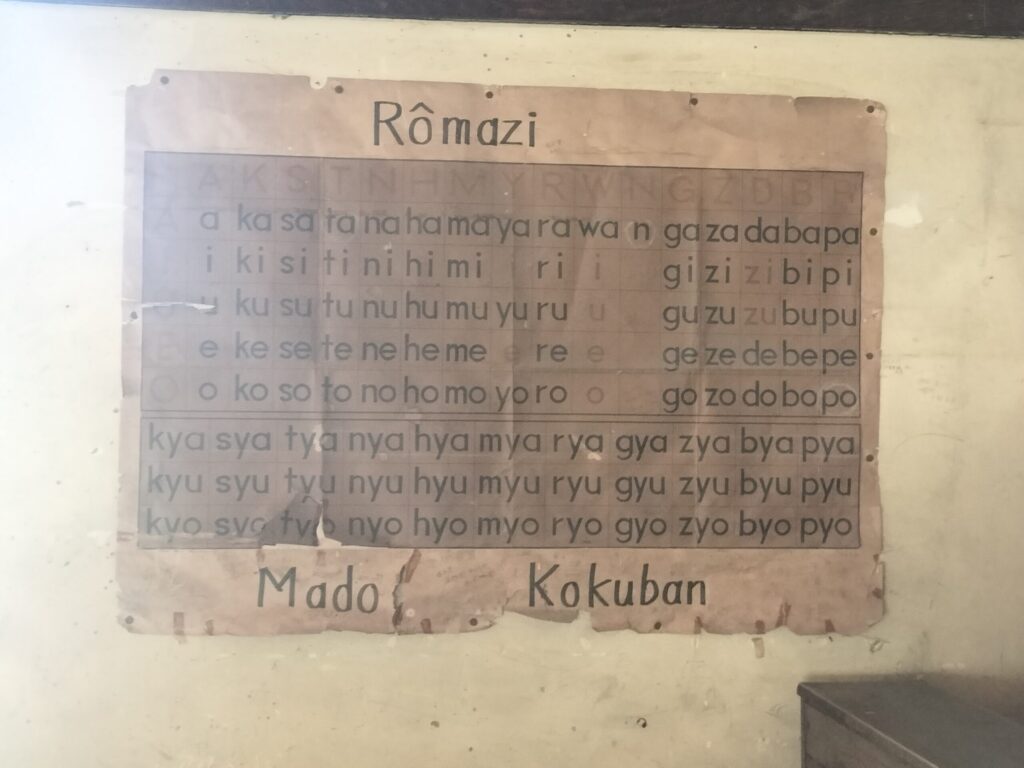 Rômazi
A K S T N H M Y R W N G Z D B P
A a ka sa ta na ha ma ya ra wa n ga za da ba pa
i ki si ti ni hi mi ri i gi zi zi bi pi
U u ku su tu nu hu mu yu ru u gu zu zu bu pu
E e ke se te ne he me e re e ge ze de be pe
O o ko so to no ho mo yo ro o go zo do bo po
kya sya tya nya hya mya rya gya zya bya pya
kyu syu tyu nyu hyu myu ryu gyu zyu byu pyu
kyo syo tyo nyo hyo myo ryo gyo zyo byo pyo
Mado Kokuban